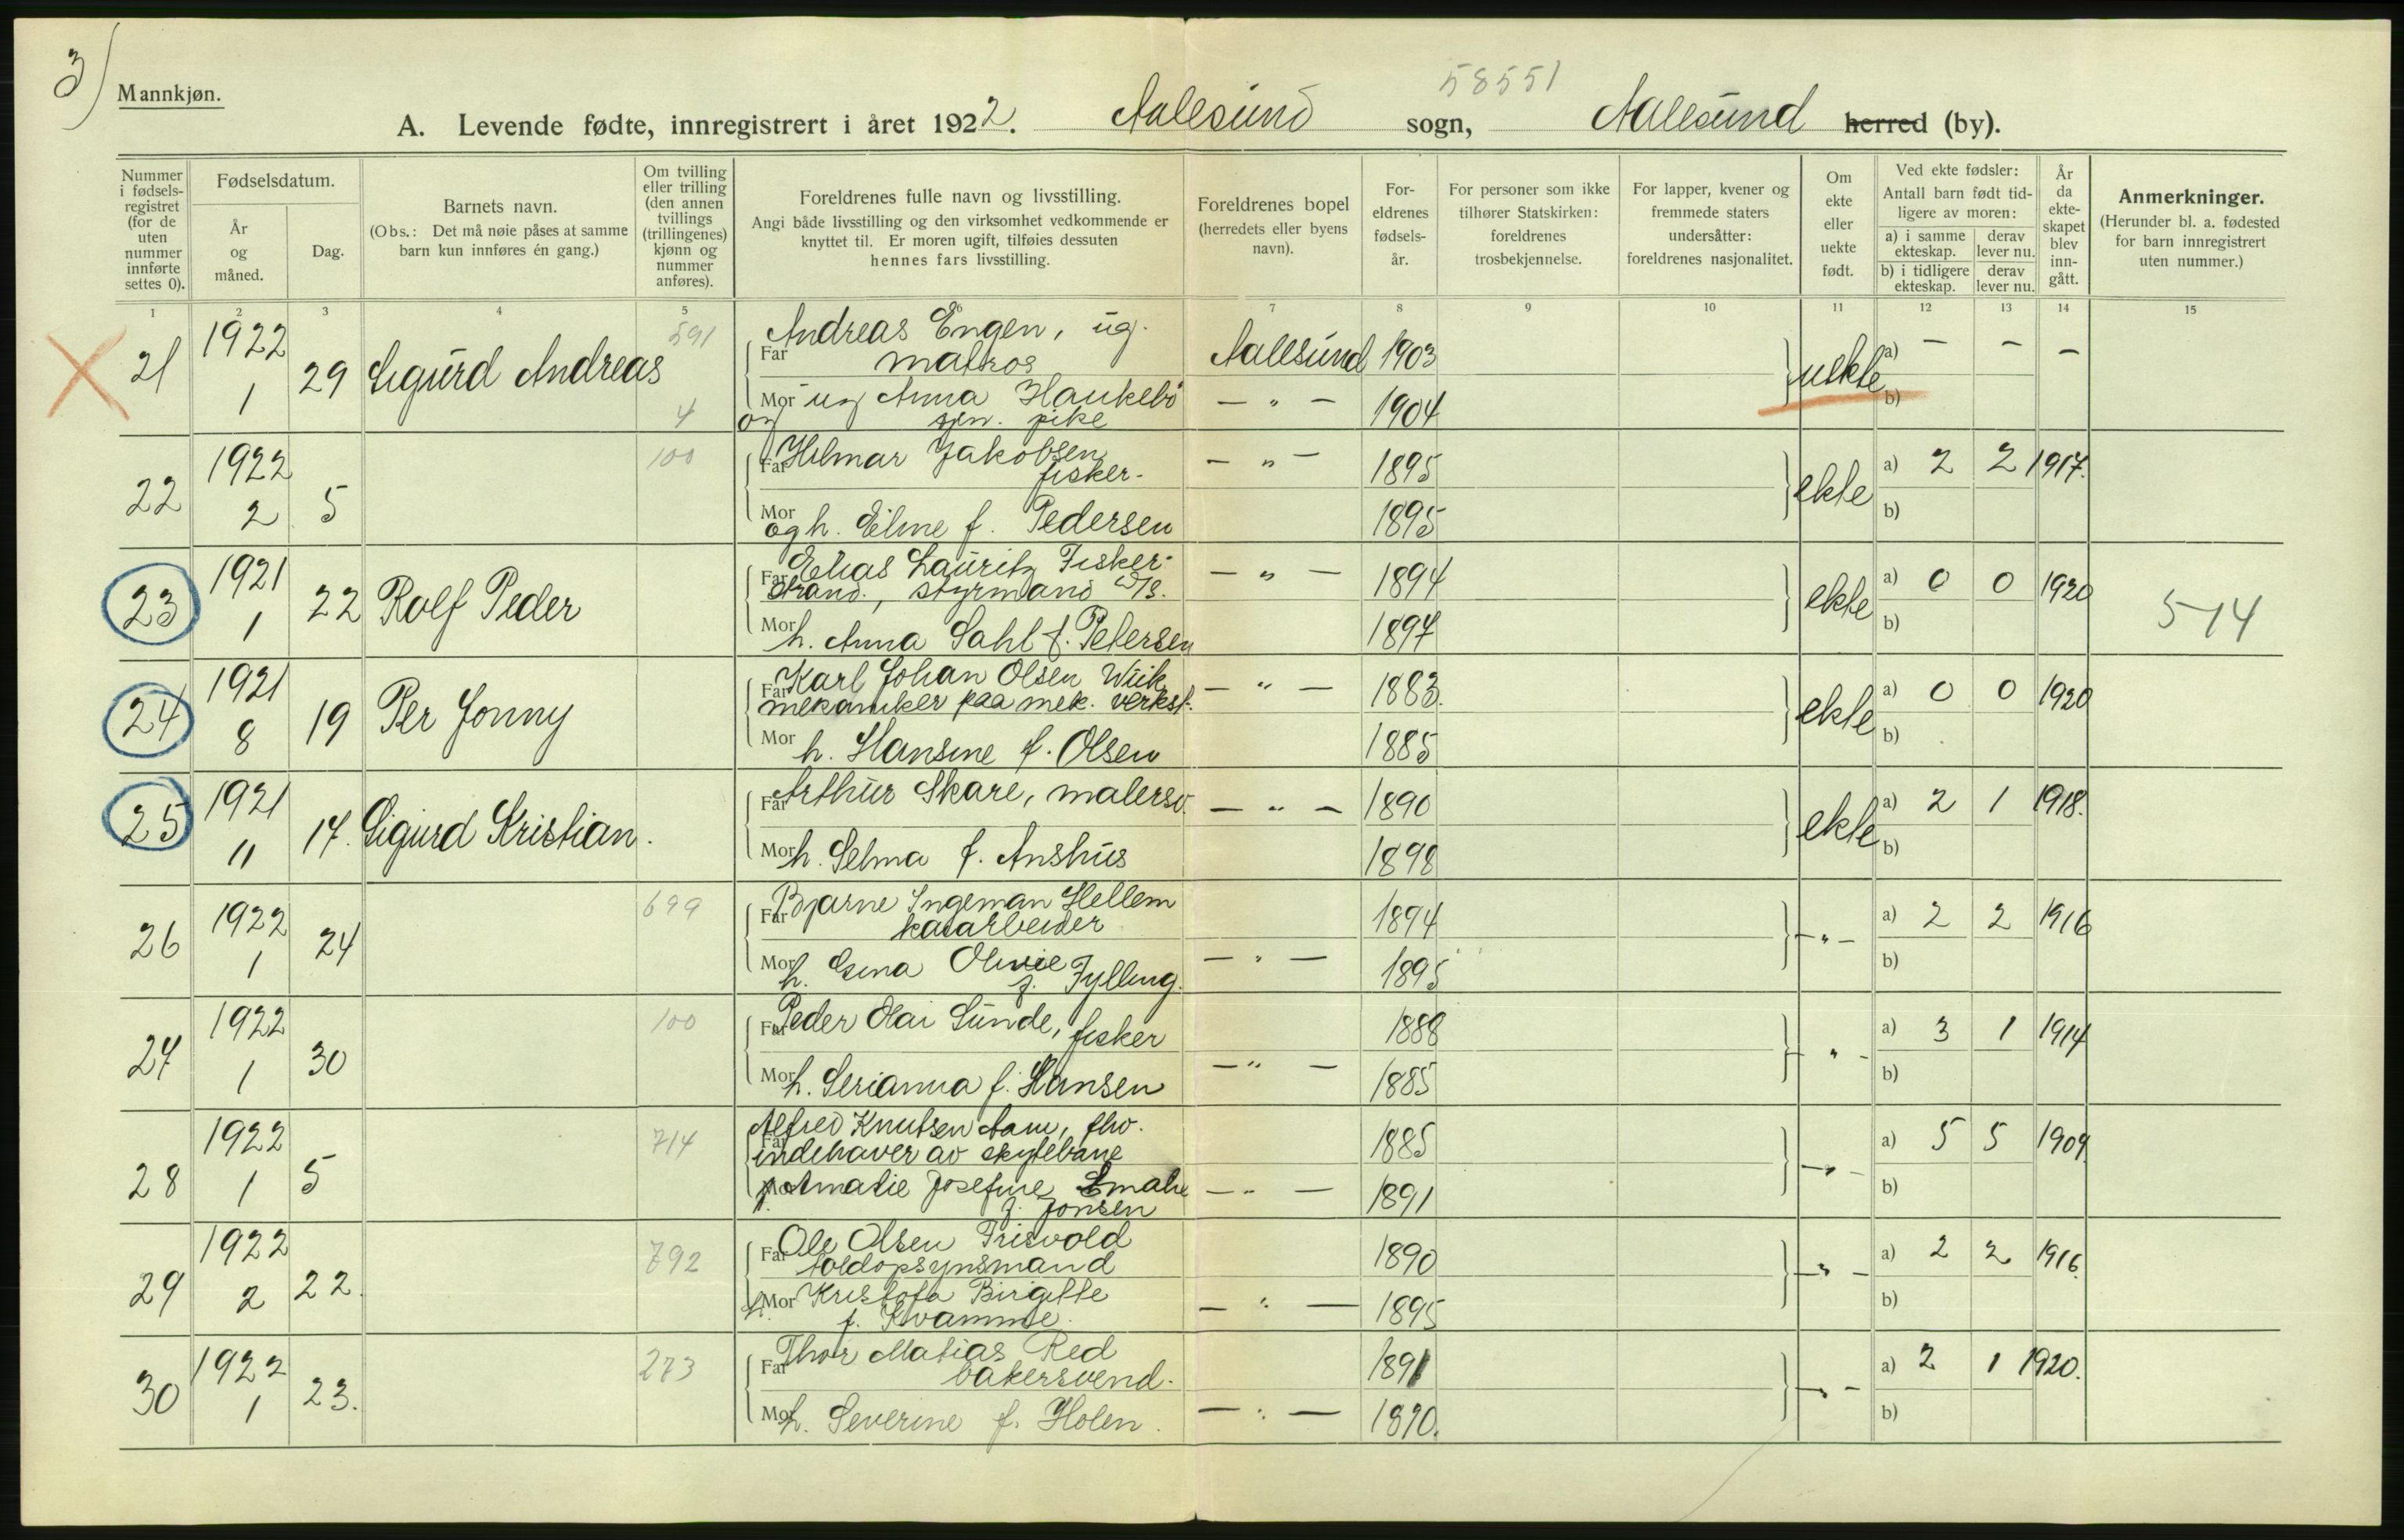 3)
Mannkjøn.
58551
A. Levende fødte, innregistrert i året 1922. Aalesund sogn, Aalesund herred (by).
Nummer i fødsels-registret (for de uten nummer innførte settes 0).
Fødselsdatum.
År og måned.
Dag.
Barnets navn.
(Obs.: Det må nøie påses at samme barn kun innføres én gang.)
Om tvilling eller trilling (den annen tvillings (trillingenes) kjønn og nummer anføres).
Foreldrenes fulle navn og livsstilling.
Angi både livsstilling og den virksomhet vedkommende er knyttet til. Er moren ugift, tilføies dessuten hennes fars livsstilling.
Foreldrenes bopel (herredets eller byens navn).
For-eldrenes fødsels-år.
For personer som ikke tilhører Statskirken: foreldrenes trosbekjennelse.
For lapper, kvener og fremmede staters undersåtter: foreldrenes nasjonalitet.
Om ekte eller uekte født.
Ved ekte fødsler: Antall barn født tid-ligere av moren:
a) i samme ekteskap. derav lever nu.
b) i tidligere ekteskap. derav lever nu.
År da ekte-skapet blev inn-gått.
Anmerkninger.
(Herunder bl. a. fødested for barn innregistrert uten nummer.)
1 2 3 4 5 6 7 8 9 10 11 12 13 14 15
21 1922 1 29 Sigurd Andreas 591 4
Far Andreas Engen, ug. matros Aalesund 1903 uekte a) — — —
Mor og ug Anna Haukebö tjen. pike — " — 1904 b)
22 1922 2 5 100
Far Hilmar Jakobsen fisker. — " — 1895 ekte a) 2 2 1917.
Mor og h. Eline f. Pedersen 1895 b)
23 1921 1 22 Rolf Peder
Far Elias Lauritz Fisker-strand., styrmand D/S. — " — 1894 ekte a) 0 0 1920 514
Mor h. Anna Dahl f. Petersen 1897 b)
24 1921 8 19 Per Jonny
Far Karl Johan Olsen Wiik mekaniker paa mek. verkst. — " — 1883. ekte a) 0 0 1920
Mor h. Hansine f. Olsen 1885 b)
25 1921 11 17. Sigurd Kristian.
Far Arthur Skare, malersv. — " — 1890 ekte a) 2 1 1918.
Mor h. Selma f. Anshus 1898 b)
26 1922 1 24 699
Far Bjarne Ingeman Hellem kaiarbeider 1894 — " — a) 2 2 1916
Mor h. Gina Olivie f. Fylling. — " — 1895 b)
27 1922 1 30 100
Far Peder Olai Sunde, fisker 1888 — " — a) 3 1 1914
Mor h. Serianna f. Hansen — " — 1885 b)
28 1922 1 5 714
Far Alfred Knutsen Aam, fhv. indehaver av skytebane 1885 — " — a) 5 5 1909.
Mor h. Amalie Josefine Emalie f. Jonsen — " — 1891 b)
29 1922 2 22. 792
Far Ole Olsen Frisvold toldopsynsmand 1890 — " — a) 2 2 1916.
Mor h. Kristofa Birgitte f. Kvamme. — " — 1895 b)
30 1922 1 23. 273
Far Thor Matias Red bakersvend. 1891 — " — a) 2 1 1920.
Mor h. Severine f. Holen. — " — 1890. b)